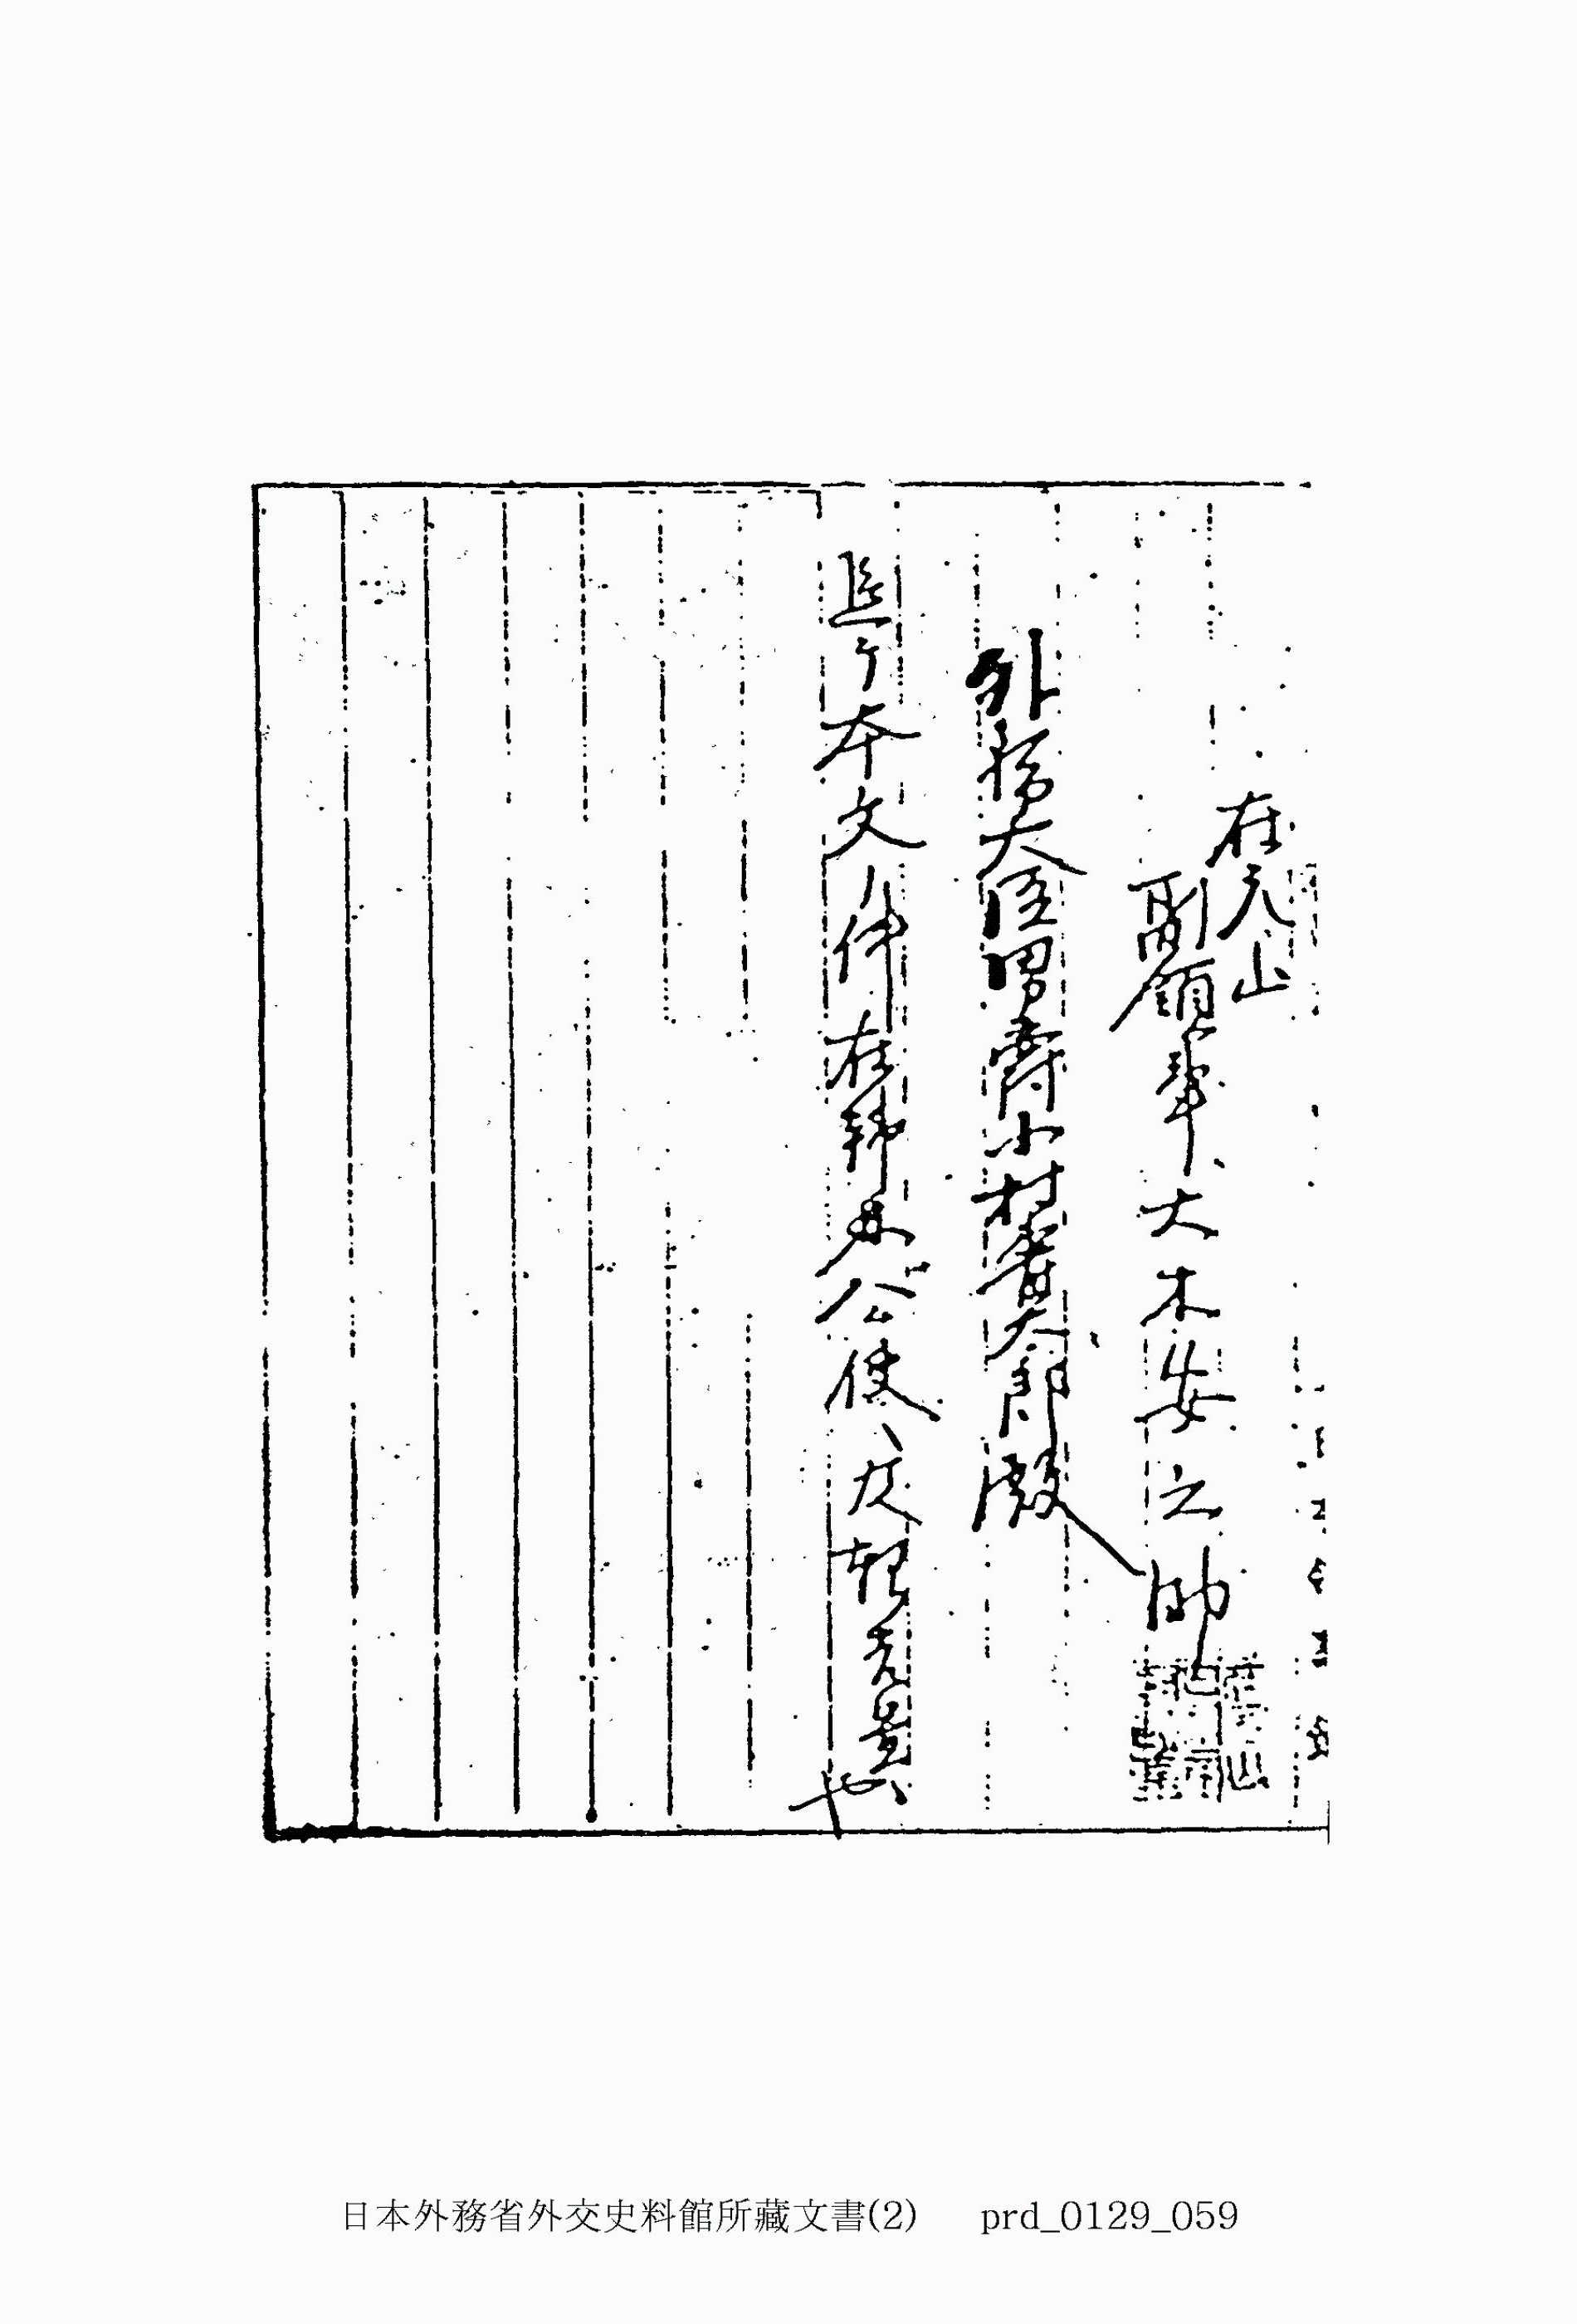 在元山
副領事大木安之助
外務大臣男爵小村寿太郎殿
追テ本文ノ件在韓林公使ヘ及報告置候也
日本外務省外交史料館所藏文書(2) prd_0129_059